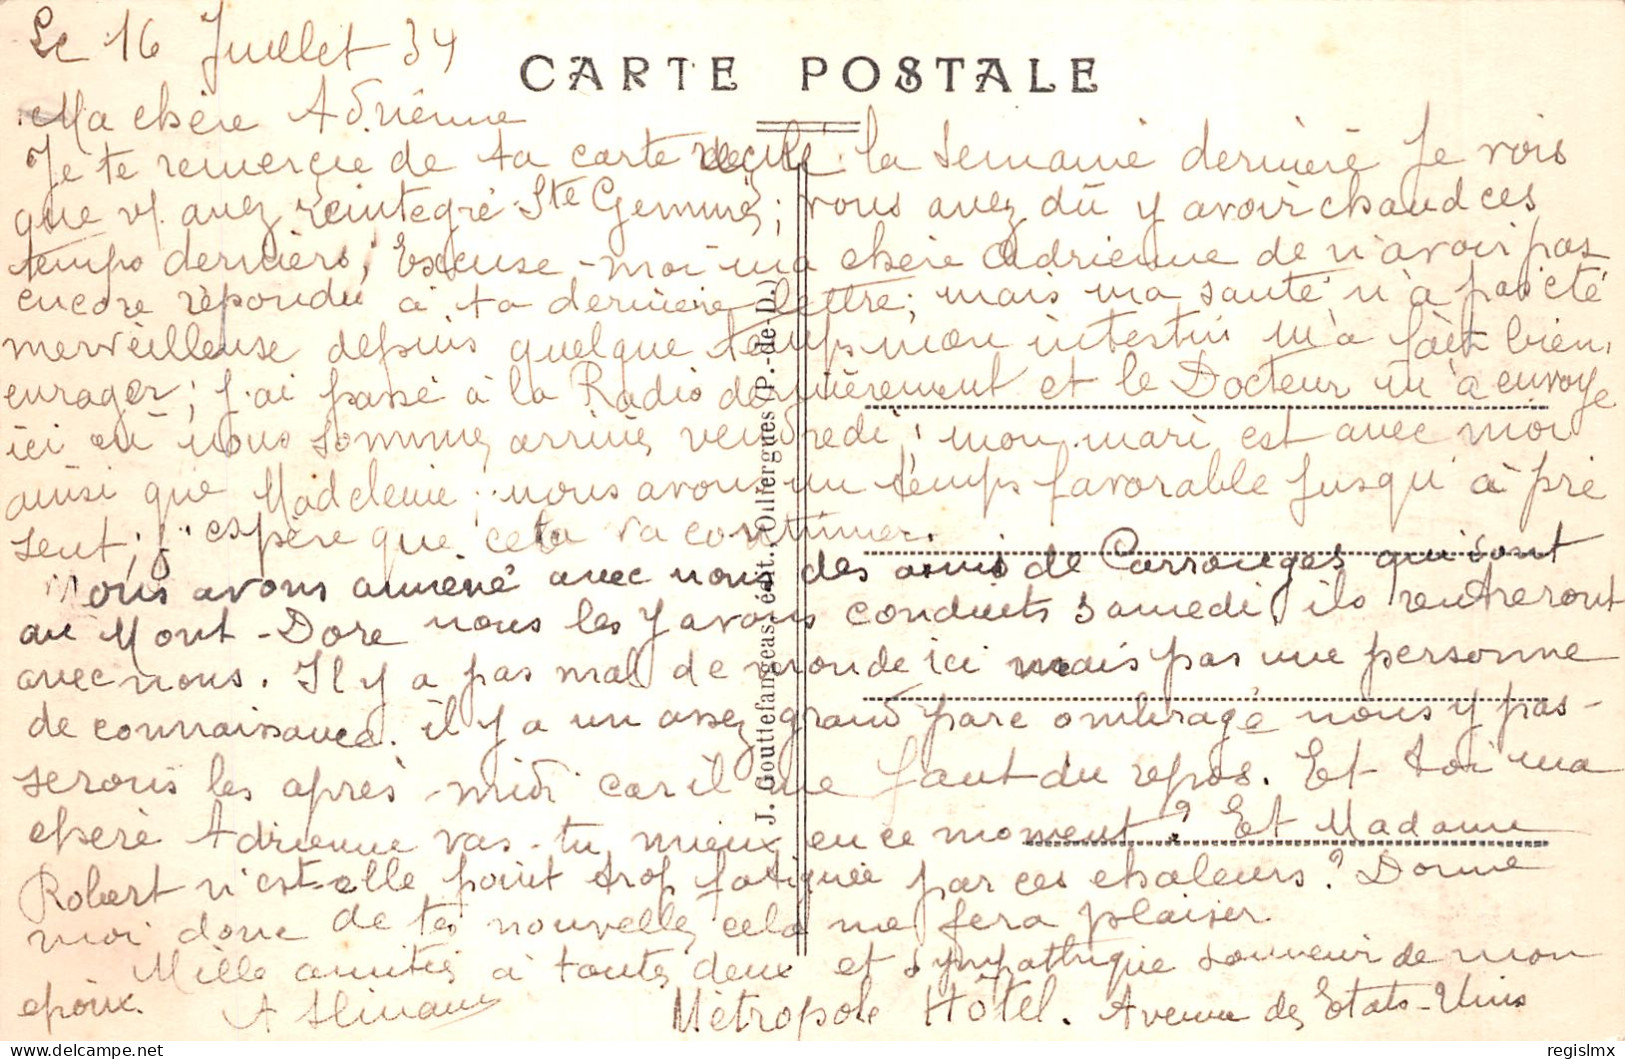 Le 16 Juillet 34
CARTE POSTALE
Ma chère Adrienne
Je te remerçie de ta carte reçue la semaine dernière Je vois
que vs avez réintegré Ste Gemme; vous avez dû y avoir chaud ces
temps derniers; Excuse-moi ma chère Adrienne de n'avoir pas
encore répondu à ta dernière lettre; mais ma santé n'a pas été
merveilleuse depuis quelque temps mon intestin m'a fait bien
enrager; j'ai passé à la Radio dernièrement et le Docteur m'a envoyé
ici où nous sommes arrivés vendredi; mon mari est avec moi
ainsi que Madeleine; nous avons un temps favorable jusqu'à pré
sent; j'espère que cela va continuer.
Nous avons amené avec nous des amis de Carrouges qui sont
au Mont-Dore nous les y avons conduits samedi, ils rentreront
avec nous. Il y a pas mal de monde ici mais pas une personne
de connaissance. il y a un assez grand parc ombragé nous y pas-
serons les après-midi car il me faut du repos. Et toi ma
chère Adrienne vas-tu mieux en ce moment? Et Madame
Robert n'est-elle point trop fatiguée par ces chaleurs? Donne
moi donc de tes nouvelles cela me fera plaisir.
Mille amitiés à toutes deux et sympathique souvenir de mon
époux. Métropole Hôtel. Avenue des Etats-Unis
J. Gouttefangeas, édit., Olliergues (P.-de-D.)
© 2024 delcampe.net
regislmx